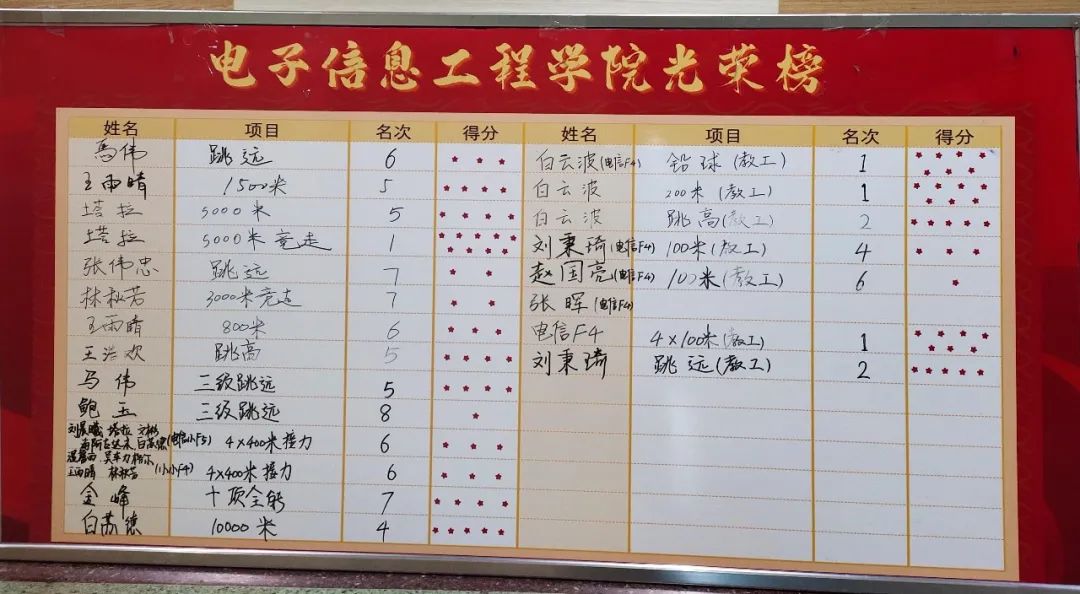 电子信息工程学院光荣榜
姓名 项目 名次 得分 姓名 项目 名次 得分
马伟 跳远 6 白云波(电信F4) 铅球(教工) 1
王雨晴 1500米 5 白云波 200米(教工) 1
塔拉 5000米 5 白云波 跳高(教工) 2
塔拉 5000米竞走 1 刘秉琦(电信F4) 100米(教工) 4
张伟忠 跳远 7 赵国亮(电信F4) 100米(教工) 6
林秋芳 3000米竞走 7 张晖(电信F4)
王雨晴 800米 6 电信F4 4×100米(教工) 1
王浩欢 跳高 5 刘秉琦 跳远(教工) 2
马伟 三级跳远 5
鲍玉 三级跳远 8
塔拉
白苏德(电信小F5) 4×400米接力 6
王雨晴 林秋芳(小小F4) 4×400米接力 6
金峰 十项全能 7
白苏德 10000米 4